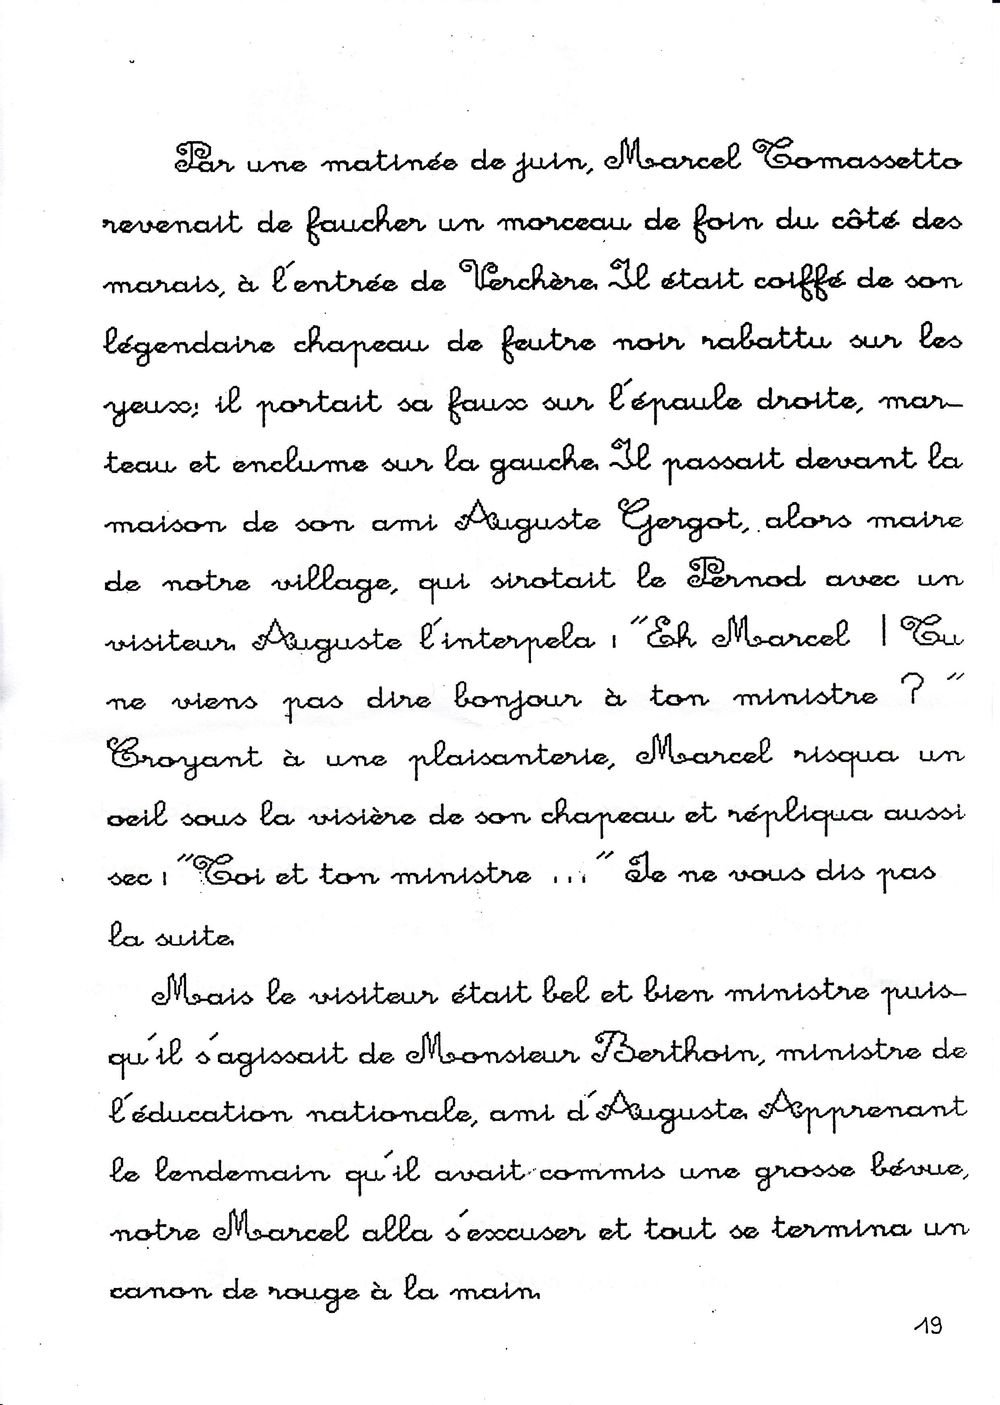 Par une matinée de juin, Marcel Tomassetto
revenait de faucher un morceau de foin du côté des
marais, à l'entrée de Verchère. Il était coiffé de son
légendaire chapeau de feutre noir rabattu sur les
yeux; il portait sa faux sur l'épaule droite, mar-
teau et enclume sur la gauche. Il passait devant la
maison de son ami Auguste Gergot, alors maire
de notre village, qui sirotait le Pernod avec un
visiteur. Auguste l'interpela : "Eh Marcel ! Tu
ne viens pas dire bonjour à ton ministre ? "
Croyant à une plaisanterie, Marcel risqua un
oeil sous la visière de son chapeau et répliqua aussi
sec : "Toi et ton ministre ..." Je ne vous dis pas
la suite.
Mais le visiteur était bel et bien ministre puis-
qu'il s'agissait de Monsieur Berthoin, ministre de
l'éducation nationale, ami d'Auguste. Apprenant
le lendemain qu'il avait commis une grosse bévue,
notre Marcel alla s'excuser et tout se termina un
canon de rouge à la main.
19